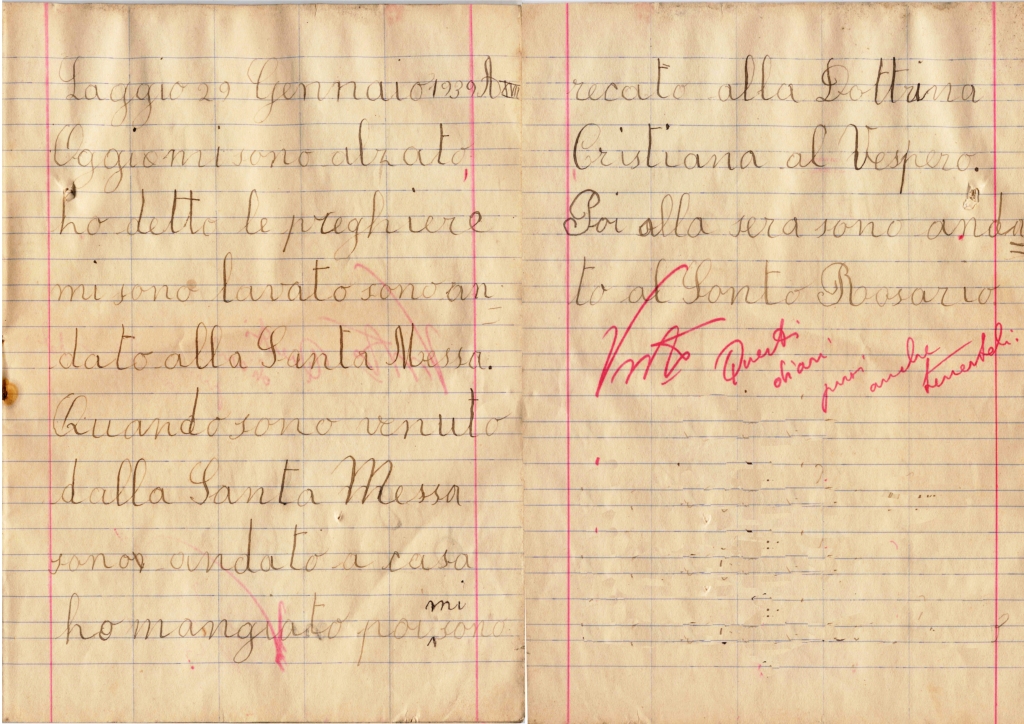 Laggio 29 Gennaio 1939 A XVII
Oggi mi sono alzato,
ho detto le preghiere
mi sono lavato sono an
dato alla Santa Messa.
Quando sono venuto
dalla Santa Messa
sono andato a casa
mi
ho mangiato poi sono
recato alla Dottrina
Cristiana al Vespero.
Poi alla sera sono anda
to al Santo Rosario
Visto Questi
diari
puoi anche